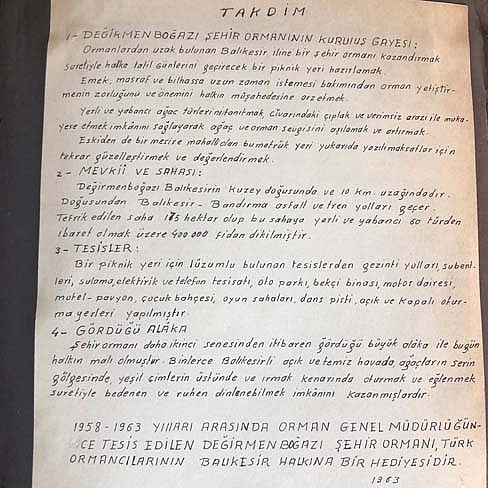 TAKDİM
1- DEĞİRMENBOĞAZI ŞEHİR ORMANININ KURULUŞ GAYESİ:
Ormanlardan uzak bulunan Balıkesir iline bir şehir ormanı kazandırmak
suretiyle halka tatil günlerini geçirecek bir piknik yeri hazırlamak.
Emek, masraf ve bilhassa uzun zaman istemesi bakımından orman yetiştir-
menin zorluğunu ve önemini halkın müşahedesine arzetmek.
Yerli ve yabancı ağaç türlerini tanıtmak, civarındaki çıplak ve verimsiz arazi ile muka-
yese etmek imkânını sağlayarak ağaç ve orman sevgisini aşılamak ve artırmak.
Eskiden de bir mesire mahalli olan bu metrük yeri yukarıda yazılı maksatlar için
tekrar güzelleştirmek ve değerlendirmek.
2- MEVKİİ VE SAHASI:
Değirmenboğazı Balıkesirin kuzey doğusunda ve 10 km. uzağındadır.
Doğusundan Balıkesir - Bandırma asfalt ve tren yolları geçer.
Tefrik edilen saha 175 hektar olup bu sahaya yerli ve yabancı 60 türden
ibaret olmak üzere 400 000 fidan dikilmiştir.
3- TESİSLER:
Bir piknik yeri için lüzumlu bulunan tesislerden gezinti yolları, subent-
leri, sulama, elektirik ve telefon tesisatı, oto parkı, bekçi binası, motor dairesi,
motel-pavyon, çocuk bahçesi, oyun sahaları, dans pisti, açık ve kapalı otur-
ma yerleri yapılmıştır.
4- GÖRDÜĞÜ ALÂKA
Şehir ormanı daha ikinci senesinden itibaren gördüğü büyük alâka ile bugün
halkın malı olmuştur. Binlerce Balıkesirli açık ve temiz havada, ağaçların serin
gölgesinde, yeşil çimlerin üstünde ve ırmak kenarında oturmak ve eğlenmek
suretiyle bedenen ve ruhen dinlenebilmek imkânını kazanmışlardır.
1958-1963 YILLARI ARASINDA ORMAN GENEL MÜDÜRLÜĞÜN-
CE TESİS EDİLEN DEĞİRMENBOĞAZI ŞEHİR ORMANI, TÜRK
ORMANCILARININ BALIKESİR HALKINA BİR HEDİYESİDİR.
1963